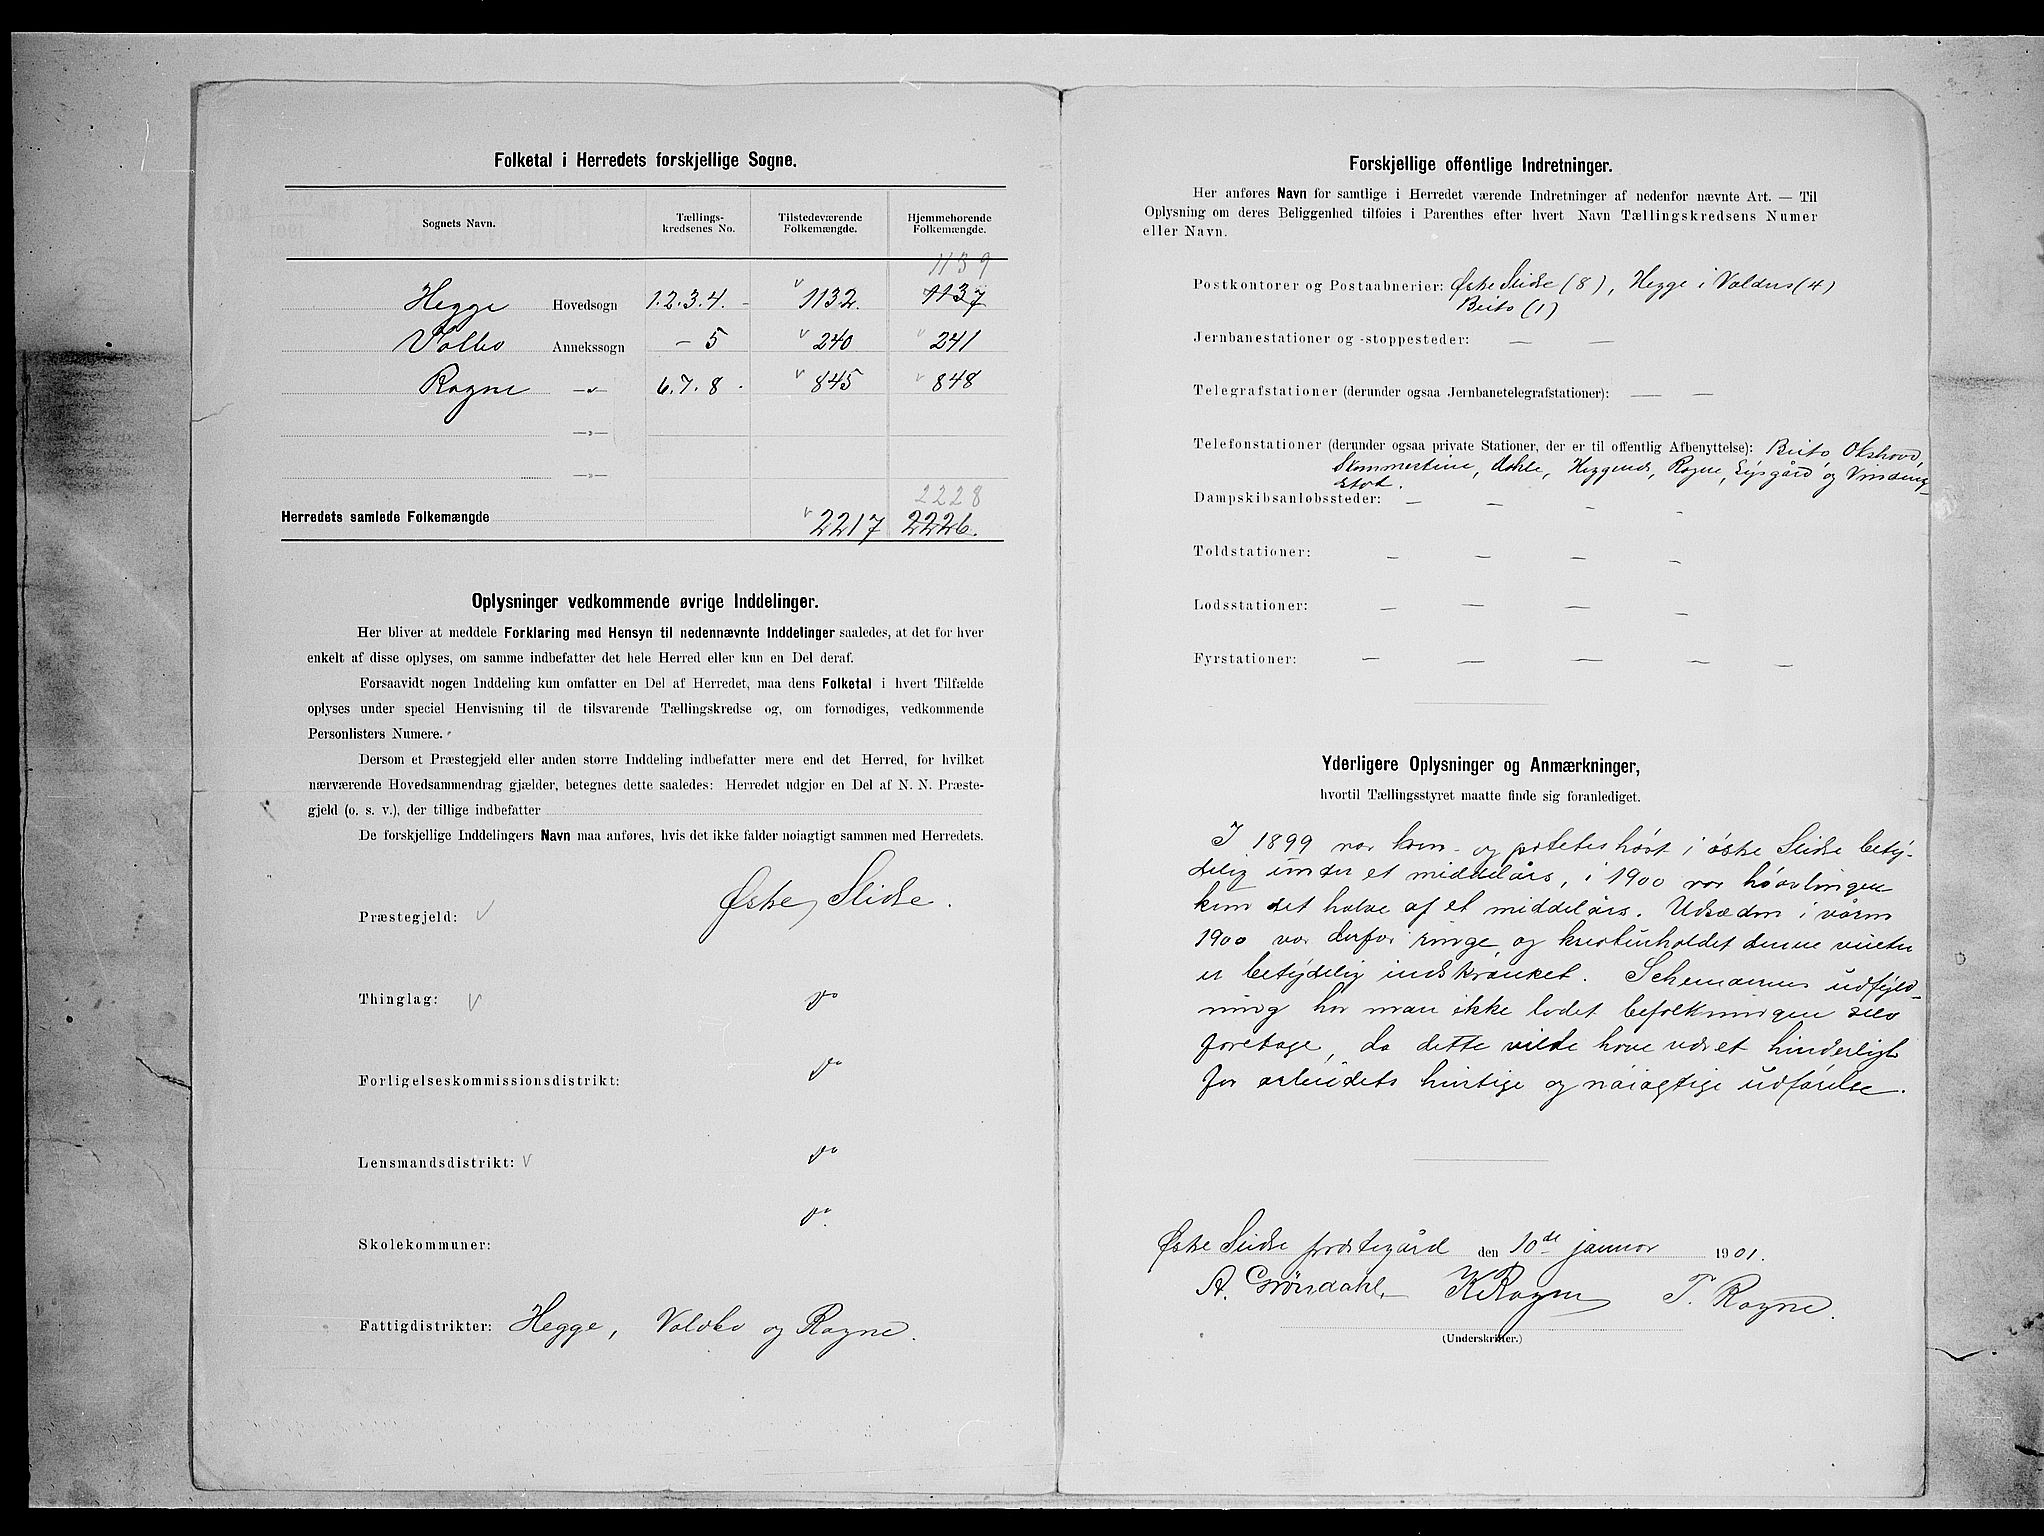 Folketal i Herredets forskjellige Sogne.
Sognets Navn. Tællings-kredsenes No. Tilstedeværende Folkemængde. Hjemmehørende Folkemængde.
1139
Hegge Hovedsogn 1.2.3.4. - v 1132. 1137
Volbo Annekssogn - 5 v 240 v 241
Rogne —„— 6.7.8. v 845 v 848
—„—
—„—
2228
Herredets samlede Folkemængde v 2217 2226.
Oplysninger vedkommende øvrige Inddelinger.
Her bliver at meddele Forklaring med Hensyn til nedennævnte Inddelinger saaledes, at det for hver
enkelt af disse oplyses, om samme indbefatter det hele Herred eller kun en Del deraf.
Forsaavidt nogen Inddeling kun omfatter en Del af Herredet, maa dens Folketal i hvert Tilfælde
oplyses under speciel Henvisning til de tilsvarende Tællingskredse og, om fornødiges, vedkommende
Personlisters Numere.
Dersom et Præstegjeld eller anden større Inddeling indbefatter mere end det Herred, for hvilket
nærværende Hovedsammendrag gjælder, betegnes dette saaledes: Herredet udgjør en Del af N. N. Præste-
gjeld (o. s. v.), der tillige indbefatter
De forskjellige Inddelingers Navn maa anføres, hvis det ikke falder nøiagtigt sammen med Herredets.
Præstegjeld: v Østre Slidre.
Thinglag: v do
Forligelseskommissionsdistrikt: do
Lensmandsdistrikt: v do
Skolekommuner: do
Fattigdistrikter: Hegge, Voldbo og Rogne.
Forskjellige offentlige Indretninger.
Her anføres Navn for samtlige i Herredet værende Indretninger af nedenfor nævnte Art. — Til
Oplysning om deres Beliggenhed tilføies i Parenthes efter hvert Navn Tællingskredsens Numer
eller Navn.
Postkontorer og Postaabnerier: Østre Slidre (8), Hegge i Valders (4)
Beito (1)
Jernbanestationer og -stoppesteder: — —
Telegrafstationer (derunder ogsaa Jernbanetelegrafstationer): — —
Telefonstationer (derunder ogsaa private Stationer, der er til offentlig Afbenyttelse): Beito Okshovd,
Skammestein, Dahle, Heggenes, Rogne, og Vinding-
stad.
Dampskibsanløbssteder: — — — —
Toldstationer: — — — —
Lodsstationer: — — — —
Fyrstationer: — — — — —
Yderligere Oplysninger og Anmærkninger,
hvortil Tællingsstyret maatte finde sig foranlediget.
I 1899 var korn- og poteteshøst i østre Slidre bety-
delig under et middelårs, i 1900 var høavlingen
kun det halve af et middelårs. Udsæden i våren
1900 var derfor ringe og kreaturholdet denne vinter
er betydelig indskrænket. Schemaernes udfyld-
ning har man ikke ladet befolkningen selv
foretage, da dette vilde have været hinderligt
for arbeidets hurtige og nöiagtige udførelse.
Østre Slidre præstegård den 10de januar 1901.
A. Gröndahl, K Rogne T. Rogne.
(Underskrifter.)